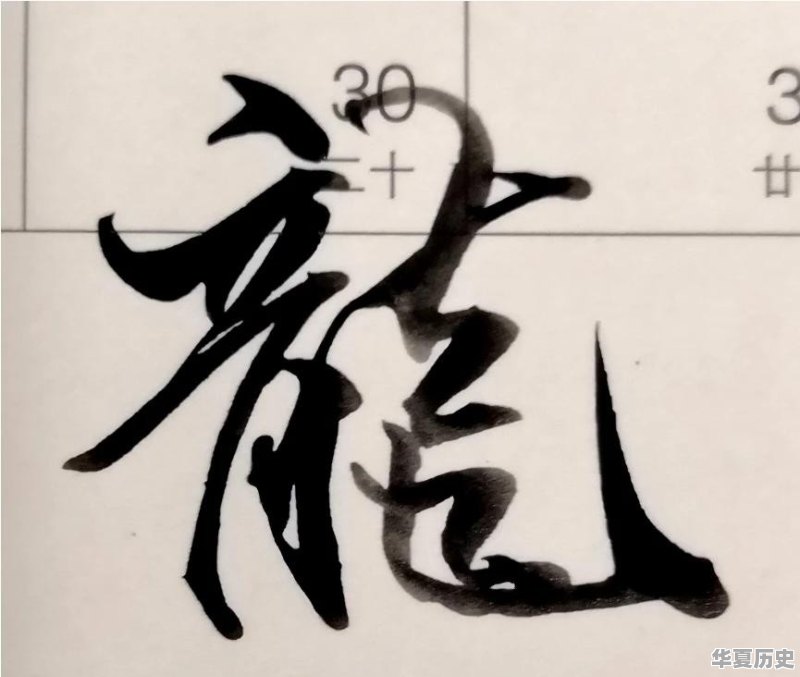 30
三十
3
廿
龍
华夏历史